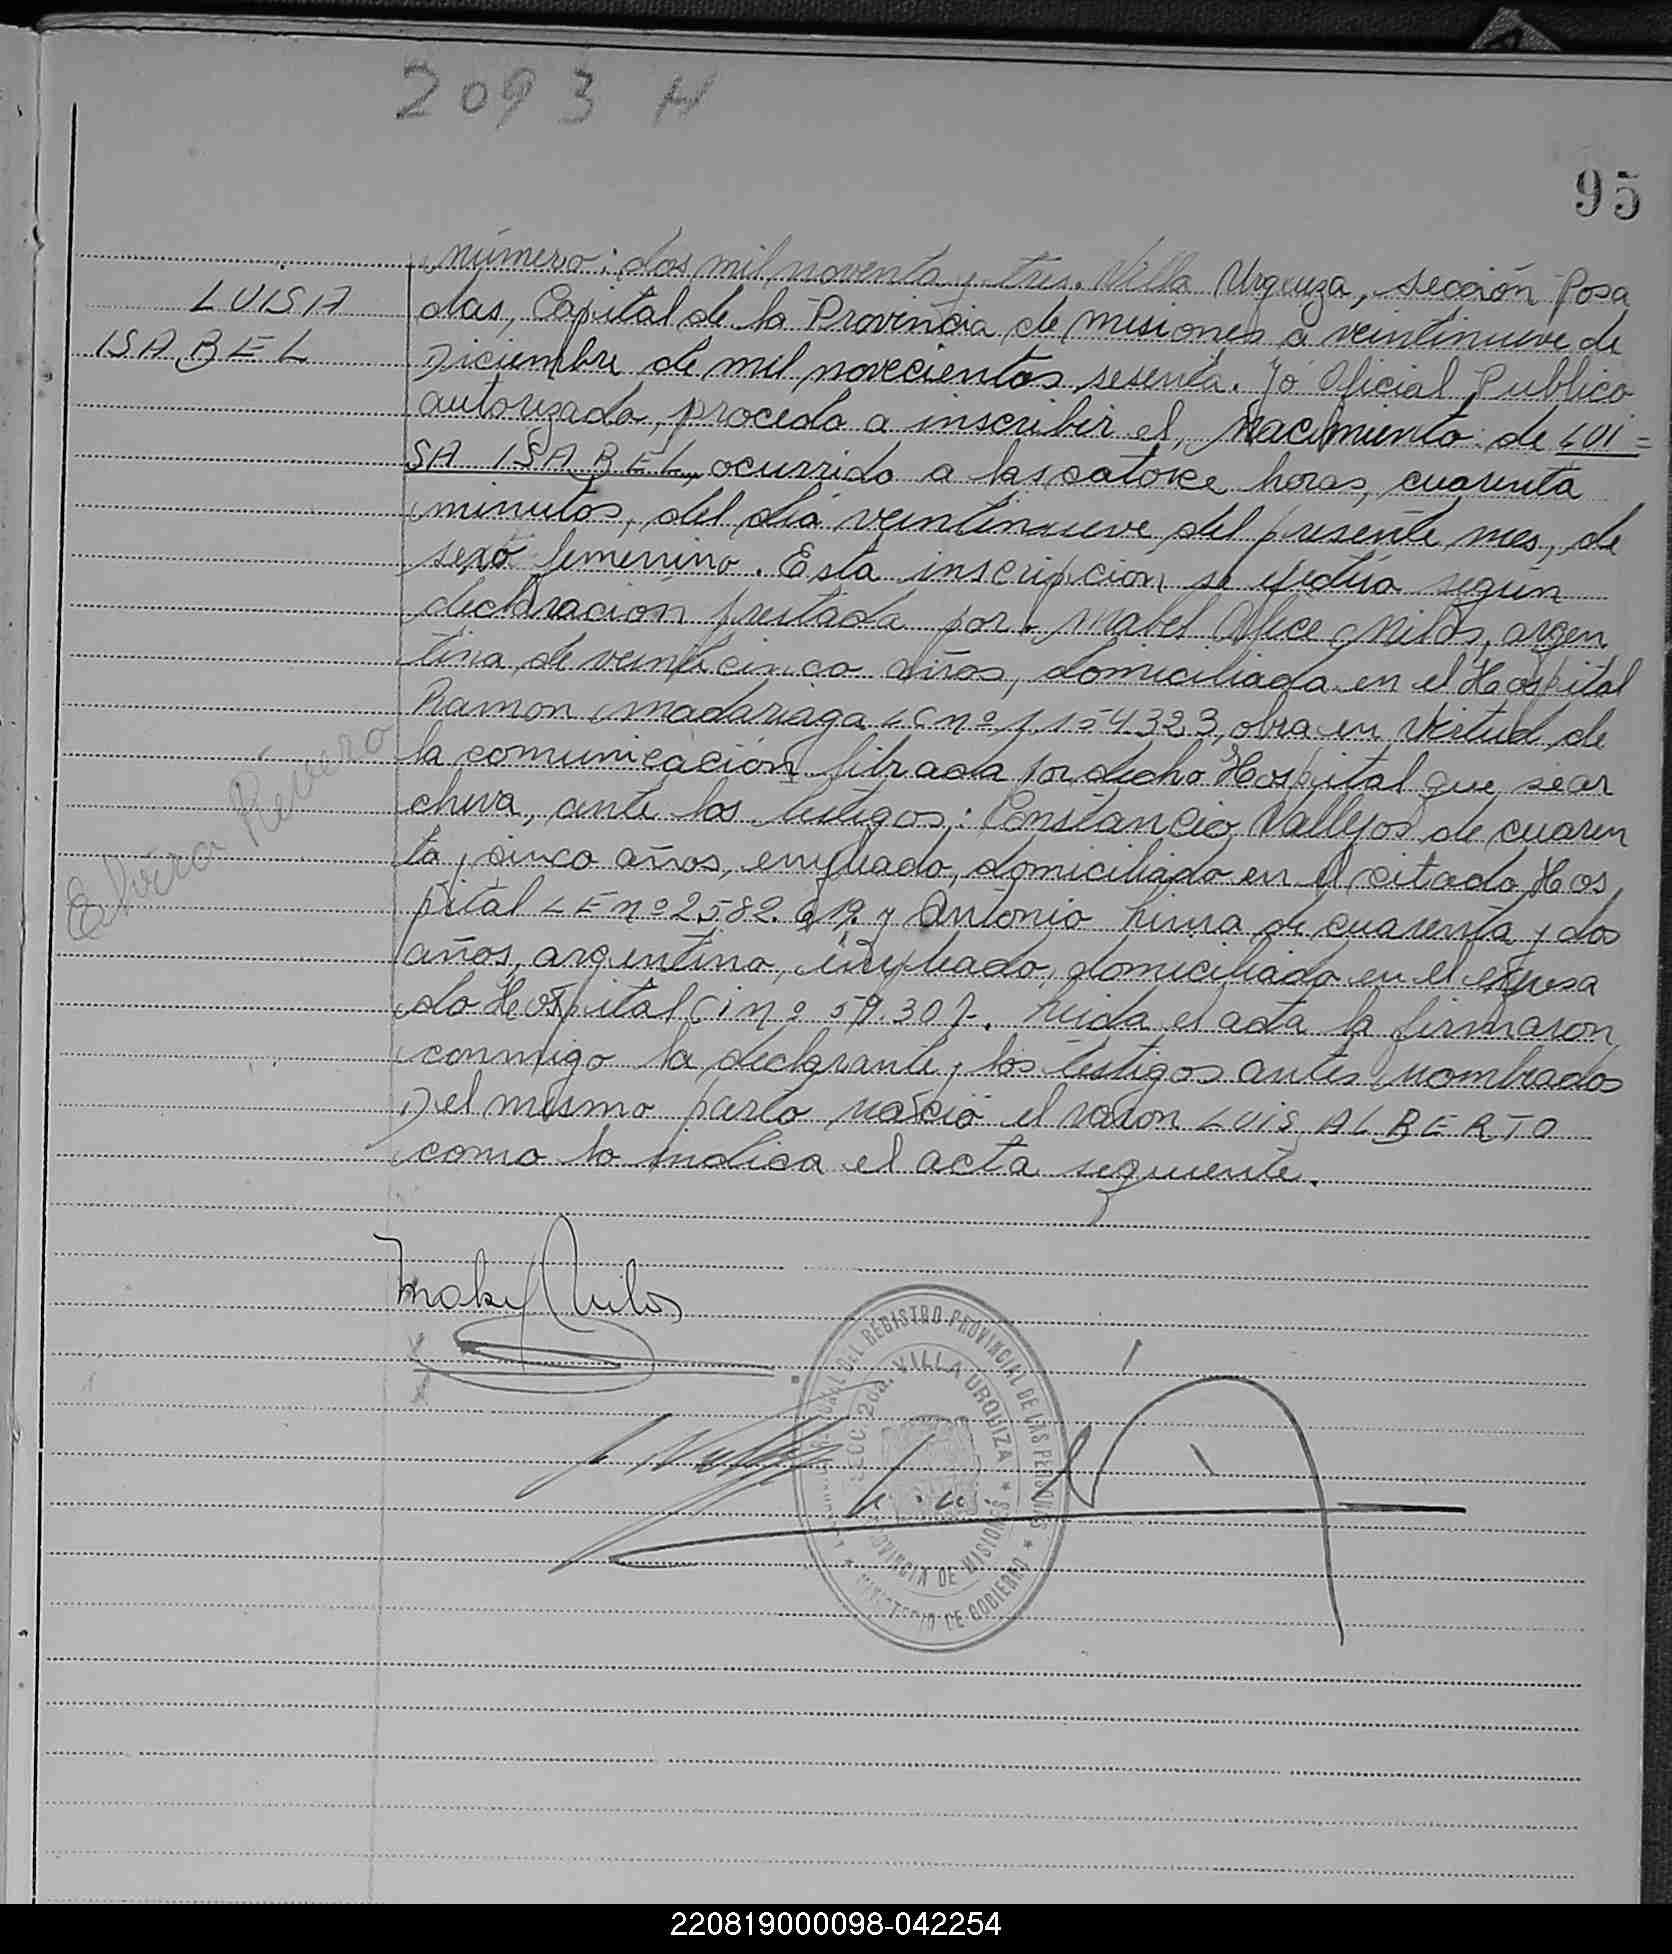 2093 N
95
LUISA
ISABEL
Elvira Rivero
número: dos mil noventa y tres. Villa Urquiza, sección Posa
das, Capital de la Provincia de misiones a veintinueve de
Diciembre de mil novecientos sesenta. Yo Oficial Publico
autorizado, procedo a inscribir el, Nacimiento de LUI=
SA ISABEL, ocurrido a las catorce horas, cuarenta
minutos, del día veintinueve del presente mes, de
sexo femenino. Esta inscripcion se efectúa según
declaración prestada por. Mabel Alice Milos, argen
tina, de veinticinco años, domiciliada en el Hospital
Ramon Madariaga LC nº 1.154.323, obra en virtud de
la comunicación librada por dicho Hospital que se ar
chiva, ante los testigos: Constancio Vallejos de cuaren
ta y cinco años, empleado, domiciliado en el citado Hos
pital LE nº 2582.619. y Antonio Lima de cuarenta y dos
años, argentino, empleado, domiciliado en el expresa
do Hospital Ci nº 59.307. Leida el acta la firmaron
conmigo la declarante y los testigos antes nombrados
Del mismo parto nació el varon LUIS ALBERTO
como lo indica el acta siguiente.
Mabel Milos
DEL REGISTRO PROVINCIAL DE LAS PERSONAS
SECC. 2da. VILLA URQUIZA
PROVINCIA DE MISIONES
MINISTERIO DE GOBIERNO
220819000098-042254